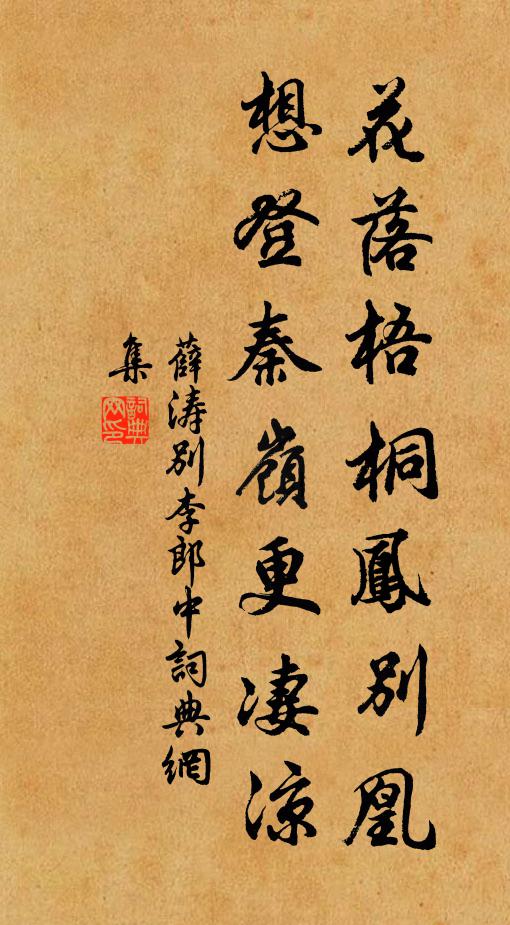 花落梧桐鳳別凰
想登秦嶺更淒涼
薛濤別李郎中詞典網
集
詞典
網印